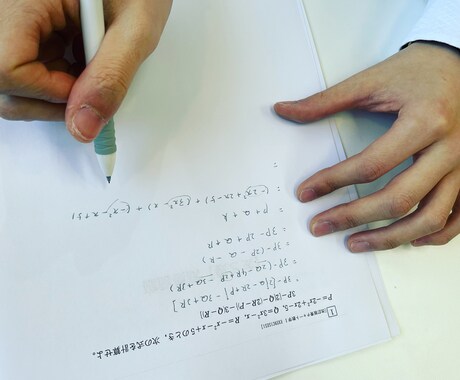 1
P=-2x²+2x-5, Q=3x²-x, R=-x²-x+5のとき, 次の式を計算せよ。
3P-[2{Q-(2R-P)}-3(Q-R)]
3P-[2{Q-2R+P}-3Q+3R]
= 3P-(2Q-4R+2P-3Q+3R)
= 3P-(2P-Q-R)
= 3P-2P+Q+R
= P+Q+R
= (-2x²+2x-5)+(3x²-x)+(-x²-x+5)
=